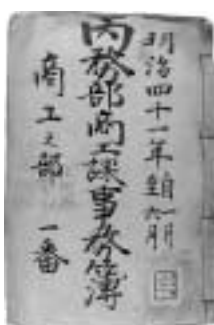 明治四十一年自一月
至六月
内務部商工課事務簿
商工之部 一番